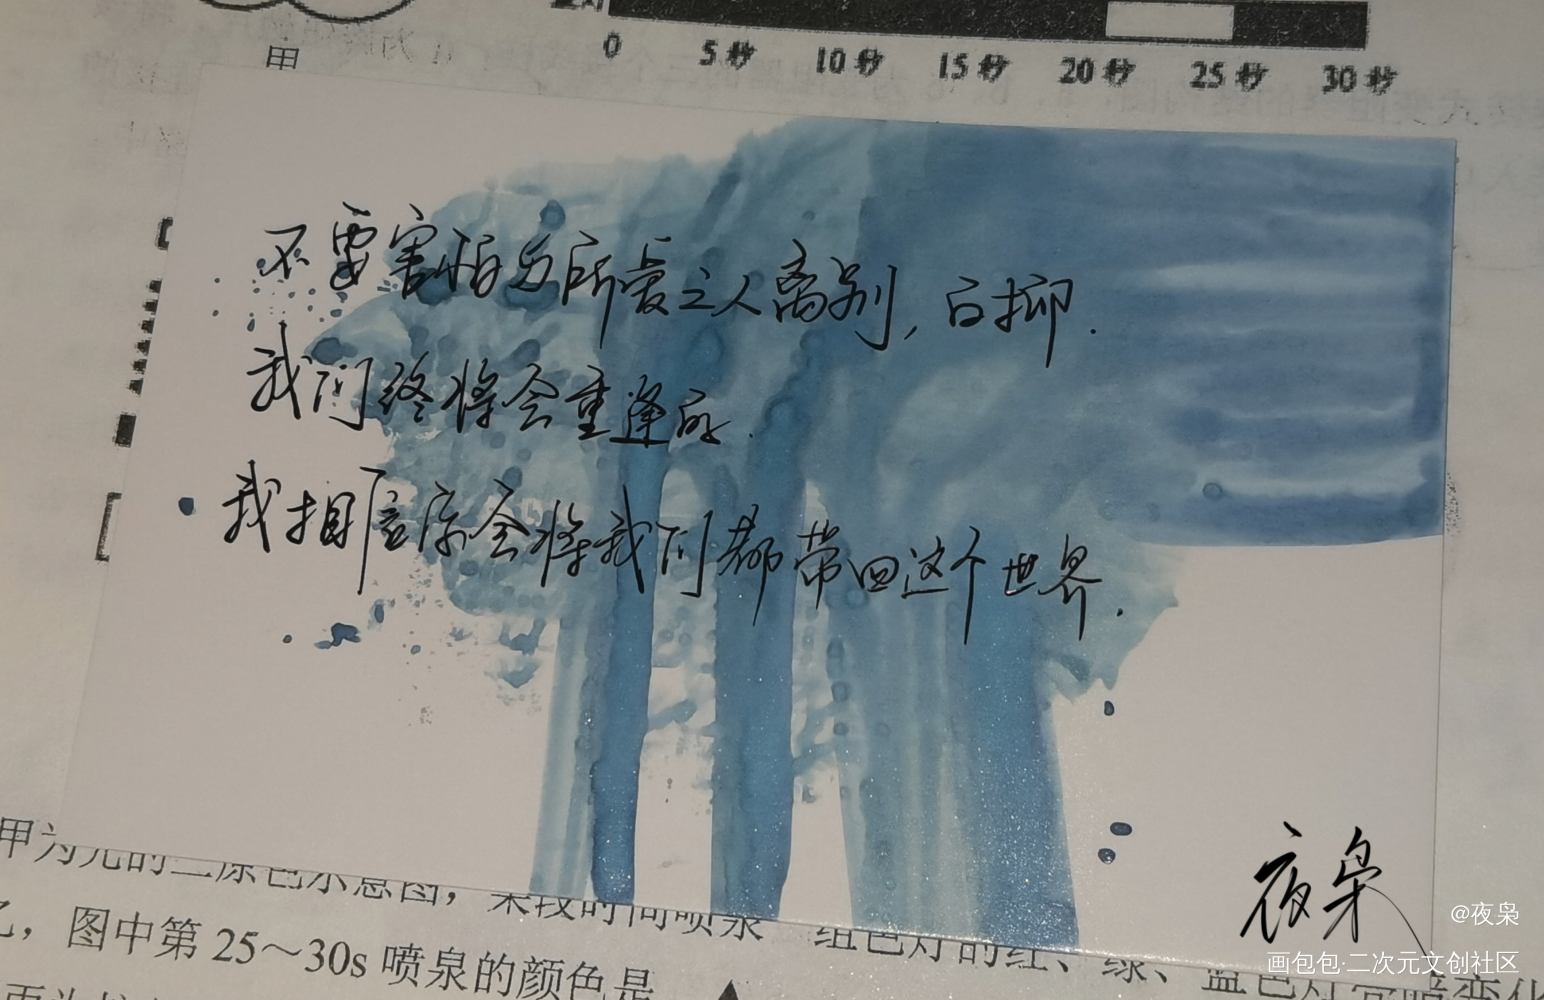 甲
0 5秒 10秒 15秒 20秒 25秒 30秒
不要害怕与所爱之人离别，白抑.
我们终将会重逢的.
我相应你会将我们都带回这个世界.
甲为光的三原色示意图，某段时间喷泉 组色灯的红、绿、蓝色灯亮暗变化
乙，图中第25～30s喷泉的颜色是
夜枭
@夜枭
画包包·二次元文创社区